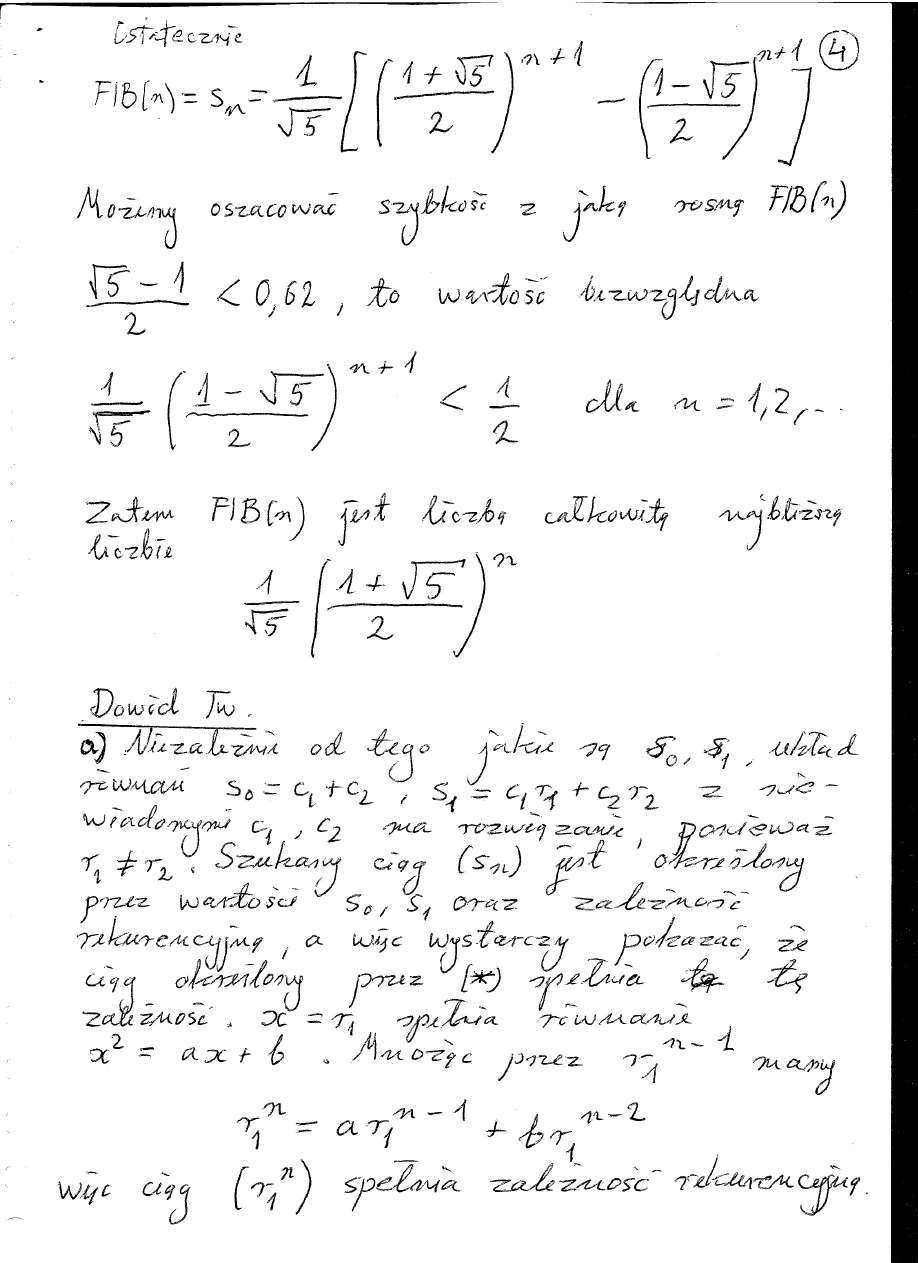 Ostatecznie
④
FIB(n) = s_n = \frac{1}{\sqrt{5}} \left[ \left( \frac{1+\sqrt{5}}{2} \right)^{n+1} - \left( \frac{1-\sqrt{5}}{2} \right)^{n+1} \right]
Możemy oszacować szybkość z jaką rosną FIB(n)
\frac{\sqrt{5}-1}{2} < 0,62, to wartość bezwzględna
\frac{1}{\sqrt{5}} \left( \frac{1-\sqrt{5}}{2} \right)^{n+1} < \frac{1}{2} dla n = 1,2,...
Zatem FIB(n) jest liczbą całkowitą najbliższą
liczbie
\frac{1}{\sqrt{5}} \left( \frac{1+\sqrt{5}}{2} \right)^{n}
Dowód Tw.
a) Niezależnie od tego jakie są s_0, s_1, układ
równań s_0 = c_1 + c_2, s_1 = c_1 r_1 + c_2 r_2 z nie-
wiadomymi c_1, c_2 ma rozwiązanie, ponieważ
r_1 ≠ r_2. Szukany ciąg (s_n) jest określony
przez wartości s_0, s_1 oraz zależność
rekurencyjną, a więc wystarczy pokazać, że
ciąg określony przez (*) spełnia tę
zależność. x = r_1 spełnia równanie
x^2 = ax + b. Mnożąc przez r_1^{n-1} mamy
r_1^n = a r_1^{n-1} + b r_1^{n-2}
więc ciąg (r_1^n) spełnia zależność rekurencyjną.